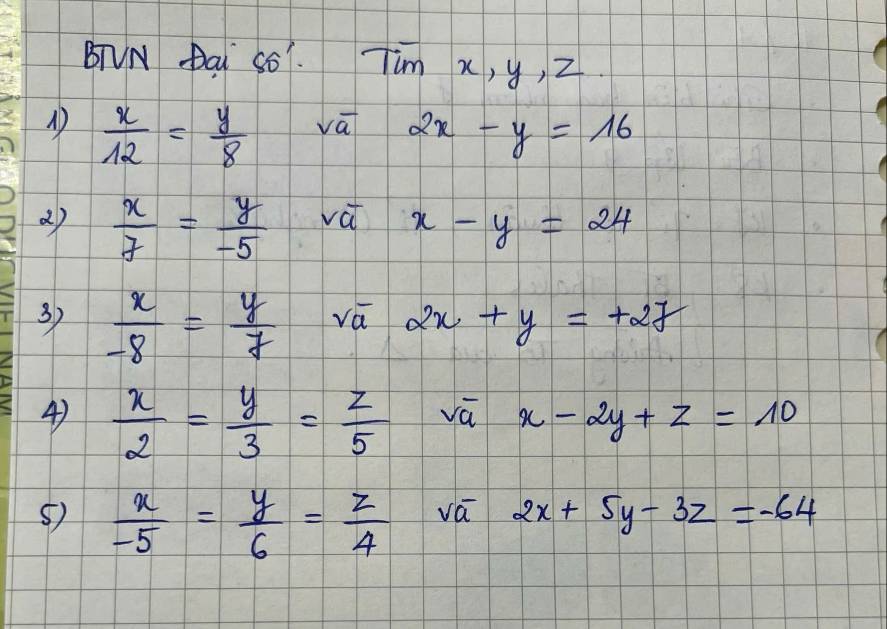 BTVN Đại số. Tìm x, y, z.
1) x/12 = y/8 và 2x - y = 16
2) x/7 = y/-5 và x - y = 24
3) x/-8 = y/7 và 2x + y = +27
4) x/2 = y/3 = z/5 và x - 2y + z = 10
5) x/-5 = y/6 = z/4 và 2x + 5y - 3z = -64